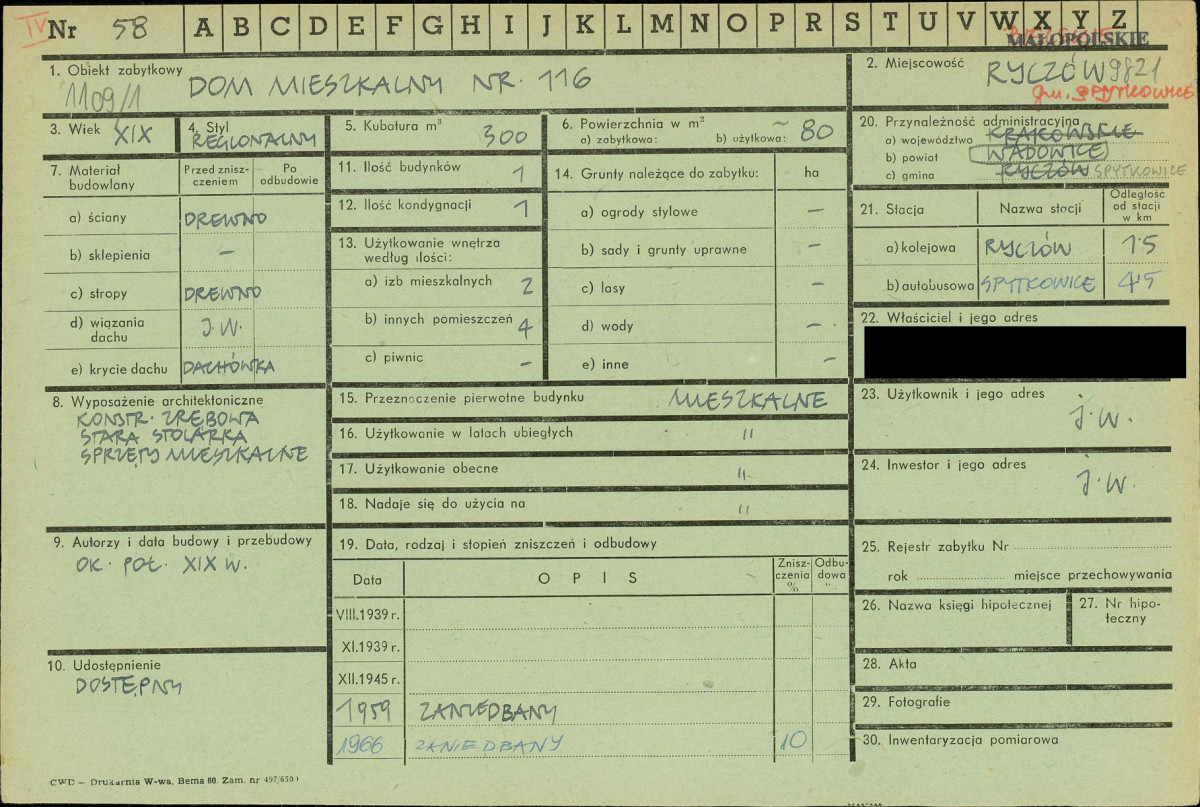 IV
Nr 58
A B C D E F G H I J K L M N O P R S T U V W X Y Z
MAŁOPOLSKIE
1. Obiekt zabytkowy
1109/1
DOM MIESZKALNY NR. 116
2. Miejscowość
RYCZÓW 9821
gm. SPYTKOWICE
3. Wiek XIX
4. Styl
REGIONALNY
5. Kubatura m³
300
6. Powierzchnia w m²
a) zabytkowa: b) użytkowa: ~ 80
20. Przynależność administracyjna
a) województwo KRAKOWSKIE
b) powiat WADOWICE
c) gmina RYCZÓW SPYTKOWICE
7. Materiał budowlany
Przed zniszczeniem
Po odbudowie
a) ściany DREWNO
b) sklepienia –
c) stropy DREWNO
d) wiązania dachu J.W.
e) krycie dachu DACHÓWKA
11. Ilość budynków 1
12. Ilość kondygnacji 1
13. Użytkowanie wnętrza
według ilości:
a) izb mieszkalnych 2
b) innych pomieszczeń 4
c) piwnic –
14. Grunty należące do zabytku: ha
a) ogrody stylowe –
b) sady i grunty uprawne –
c) lasy –
d) wody –
e) inne –
21. Stacja
Nazwa stacji
Odległość od stacji w km
a) kolejowa RYCZÓW 1.5
b) autobusowa SPYTKOWICE 4.5
22. Właściciel i jego adres
8. Wyposażenie architektoniczne
KONSTR. ZRĘBOWA
STARA STOLARKA
SPRZĘTY MIESZKALNE
15. Przeznoczenie pierwotne budynku MIESZKALNE
16. Użytkowanie w latach ubiegłych "
17. Użytkowanie obecne "
18. Nadaje się do użycia na "
23. Użytkownik i jego adres
J.W.
24. Inwestor i jego adres
J.W.
9. Autorzy i data budowy i przebudowy
OK. POŁ. XIX W.
19. Data, rodzaj i stopień zniszczeń i odbudowy
Data
OPIS
Zniszczenia %
Odbudowa %
VIII.1939 r.
XI.1939 r.
XII.1945 r.
1959 ZANIEDBANY
1966 ZANIEDBANY 10
10. Udostępnienie
DOSTĘPNY
25. Rejestr zabytku Nr
rok miejsce przechowywania
26. Nazwa księgi hipotecznej
27. Nr hipoteczny
28. Akta
29. Fotografie
30. Inwentaryzacja pomiarowa
CWD – Drukarnia W-wa, Bema 60. Zam. nr 497/650